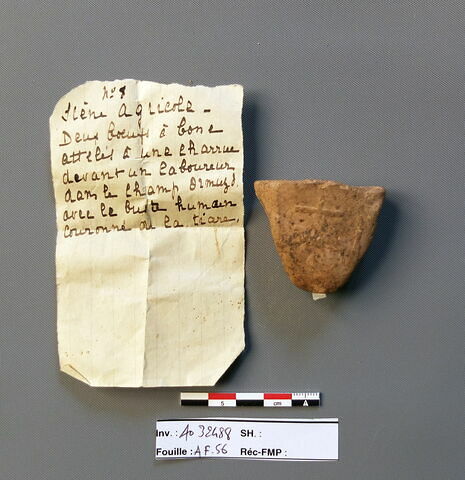 No 8
Scène Agricole -
Deux boeufs à bosse
attelés à une charrue
devant un laboureur
dans le champ Ormuzd
avec le buste humain
couronné de la tiare.
5 cm A
Inv. : AO 32488 SH. :
Fouille : AF. 56 Réc-FMP :